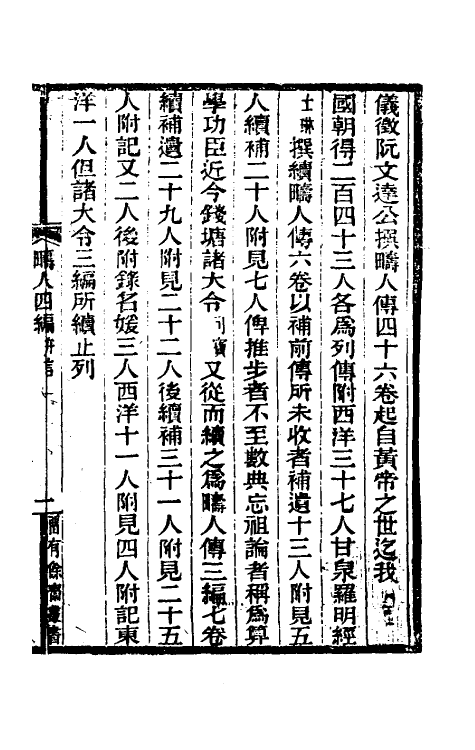 儀徵阮文達公撰疇人傳四十六卷起自黃帝之世迄我
國朝得二百四十三人各爲列傳附西洋三十七人甘泉羅明經
士琳撰續疇人傳六卷以補前傳所未收者補遺十三人附見五
人續補二十人附見七人俾推步者不至數典忘祖論者稱爲算
學功臣近今錢塘諸大令可寶又從而續之爲疇人傳三編七卷
續補遺二十九人附見二十二人後續補三十一人附見二十五
人附記又二人後附錄名媛三人西洋十一人附見四人附記東
洋一人但諸大令三編所續止列
疇人四編
一
留有餘齋叢書